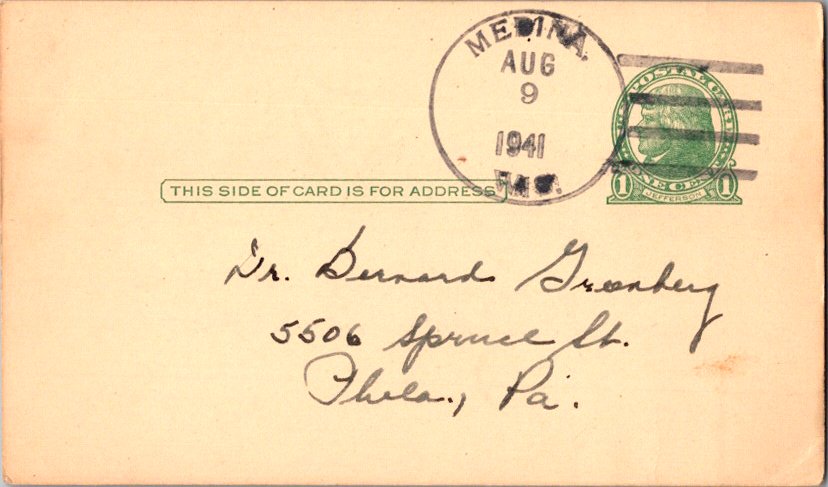 MEDINA,
AUG
9
1941
WAS.
U.S. POSTAL CARD
ONE CENT
1 JEFFERSON 1
THIS SIDE OF CARD IS FOR ADDRESS
Dr. Bernard Greenberg
5506 Spruce St.
Phila., Pa.